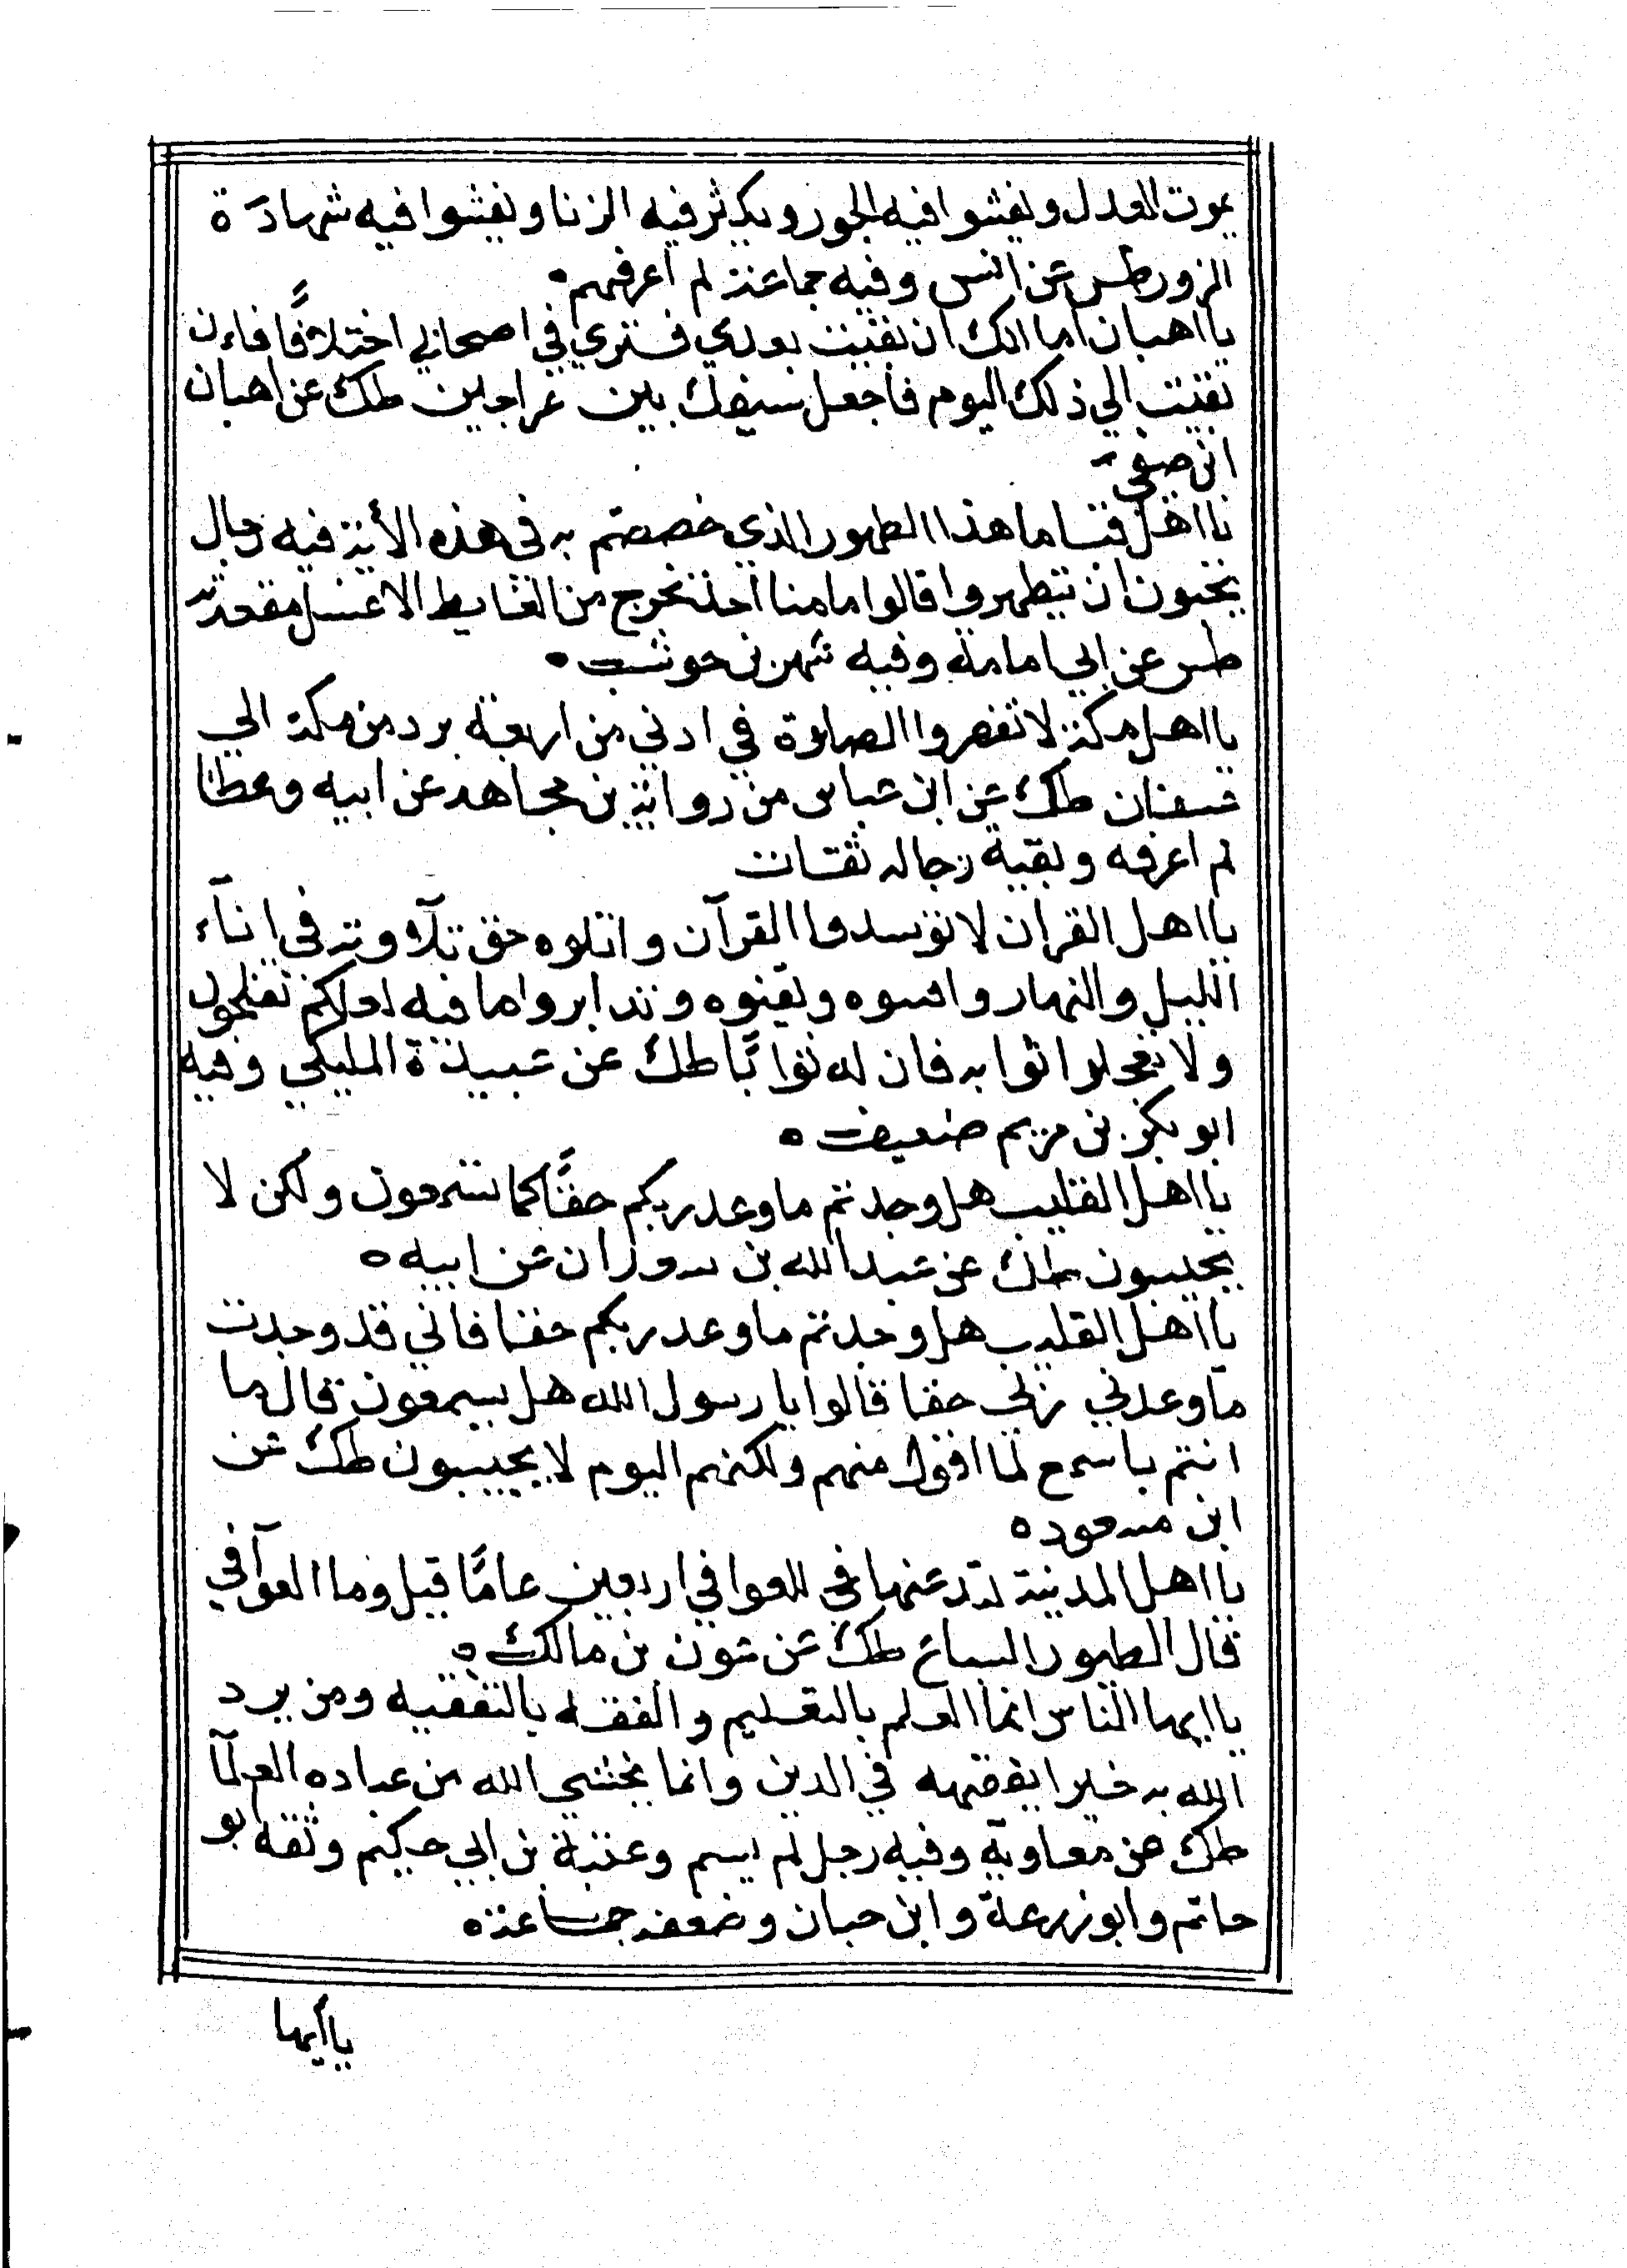 يموت العدل ويفشوا فيه الجور ويكثر فيه الزنا ويفشوا فيه شهادة
الزور طس عن انس وفيه جماعة لم اعرفهم
يا اهبان اما انك ان بقيت بعدي فستري في اصحابي اختلافًا فاءن
بقيت الي ذلك اليوم فاجعل سيفك بين عراجين طك عن اهبان
ابن صيفي
يا اهل قبا ما هذا الطهور الذي خصصتم به في هذه الأية فيه رجال
يحبون ان يتطهروا قالوا ما منا احد يخرج من الغايط الا غسل مقعدته
طس عن ابي امامة وفيه شهر بن حوشب
يا اهل مكة لا تقصروا الصلوة في ادني من اربعة برد من مكة الي
عسفان طك عن ابن عباس من رواية بن مجاهد عن ابيه وعطا
لم اعرفه وبقية رجاله ثقات
يا اهل القران لا توسدوا القرآن واتلوه حق تلآوته في انآء
الليل والنهار وافشوه وتغنوه وتدابروا ما فيه لعلكم تفلحون
ولا تعجلوا ثوابه فان له ثوابًا طك عن عبيدة المليكي وفيه
ابو بكر بن مريم ضعيف
يا اهل القليب هل وجدتم ما وعد ربكم حقًا كما تسمعون ولكن لا
يجيبون طك عن عبد الله بن سيدان عن ابيه
يا اهل القليب هل وجدتم ما وعد ربكم حقا فاني قد وجدت
ما وعدني ربي حقا قالوا يا رسول الله هل يسمعون قال ما
انتم باسمع لما اقول منهم ولكنهم اليوم لا يجيبون طك عن
ابن مسعود
يا اهل المدينة للعوافي اربعين عامًا قيل وما العوآفي
قال الطيور السباع طك عن عون بن مالك
يا ايها الناس انما العلم بالتعليم والفقه بالتفقيه ومن يرد
الله به خيرا يفقهه في الدين وانما يخشي الله من عباده العلمآ
طك عن معاوية وفيه رجل لم يسم وعتبة بن ابي حكيم وثقه ابو
حاتم وابو زرعة وابن حبان وضعفه جماعة
يا أيها